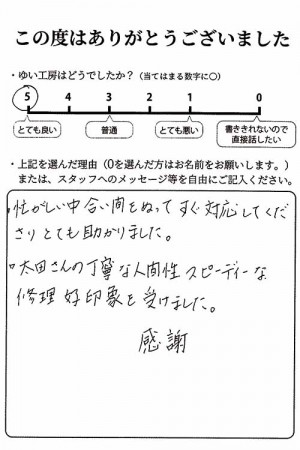 この度はありがとうございました
・ゆい工房はどうでしたか？（当てはまる数字に○）
5 4 3 2 1 0
とても良い 普通 とても悪い 書ききれないので
直接話したい
・上記を選んだ理由（0を選んだ方はお名前をお願いします。）
または、スタッフへのメッセージ等を自由にご記入ください。
・忙がしい中合い間をぬってすぐ対応してくだ
さりとても助かりました。
・太田さんの丁寧な人間性 スピーディーな
修理 好印象を受けました。
感謝